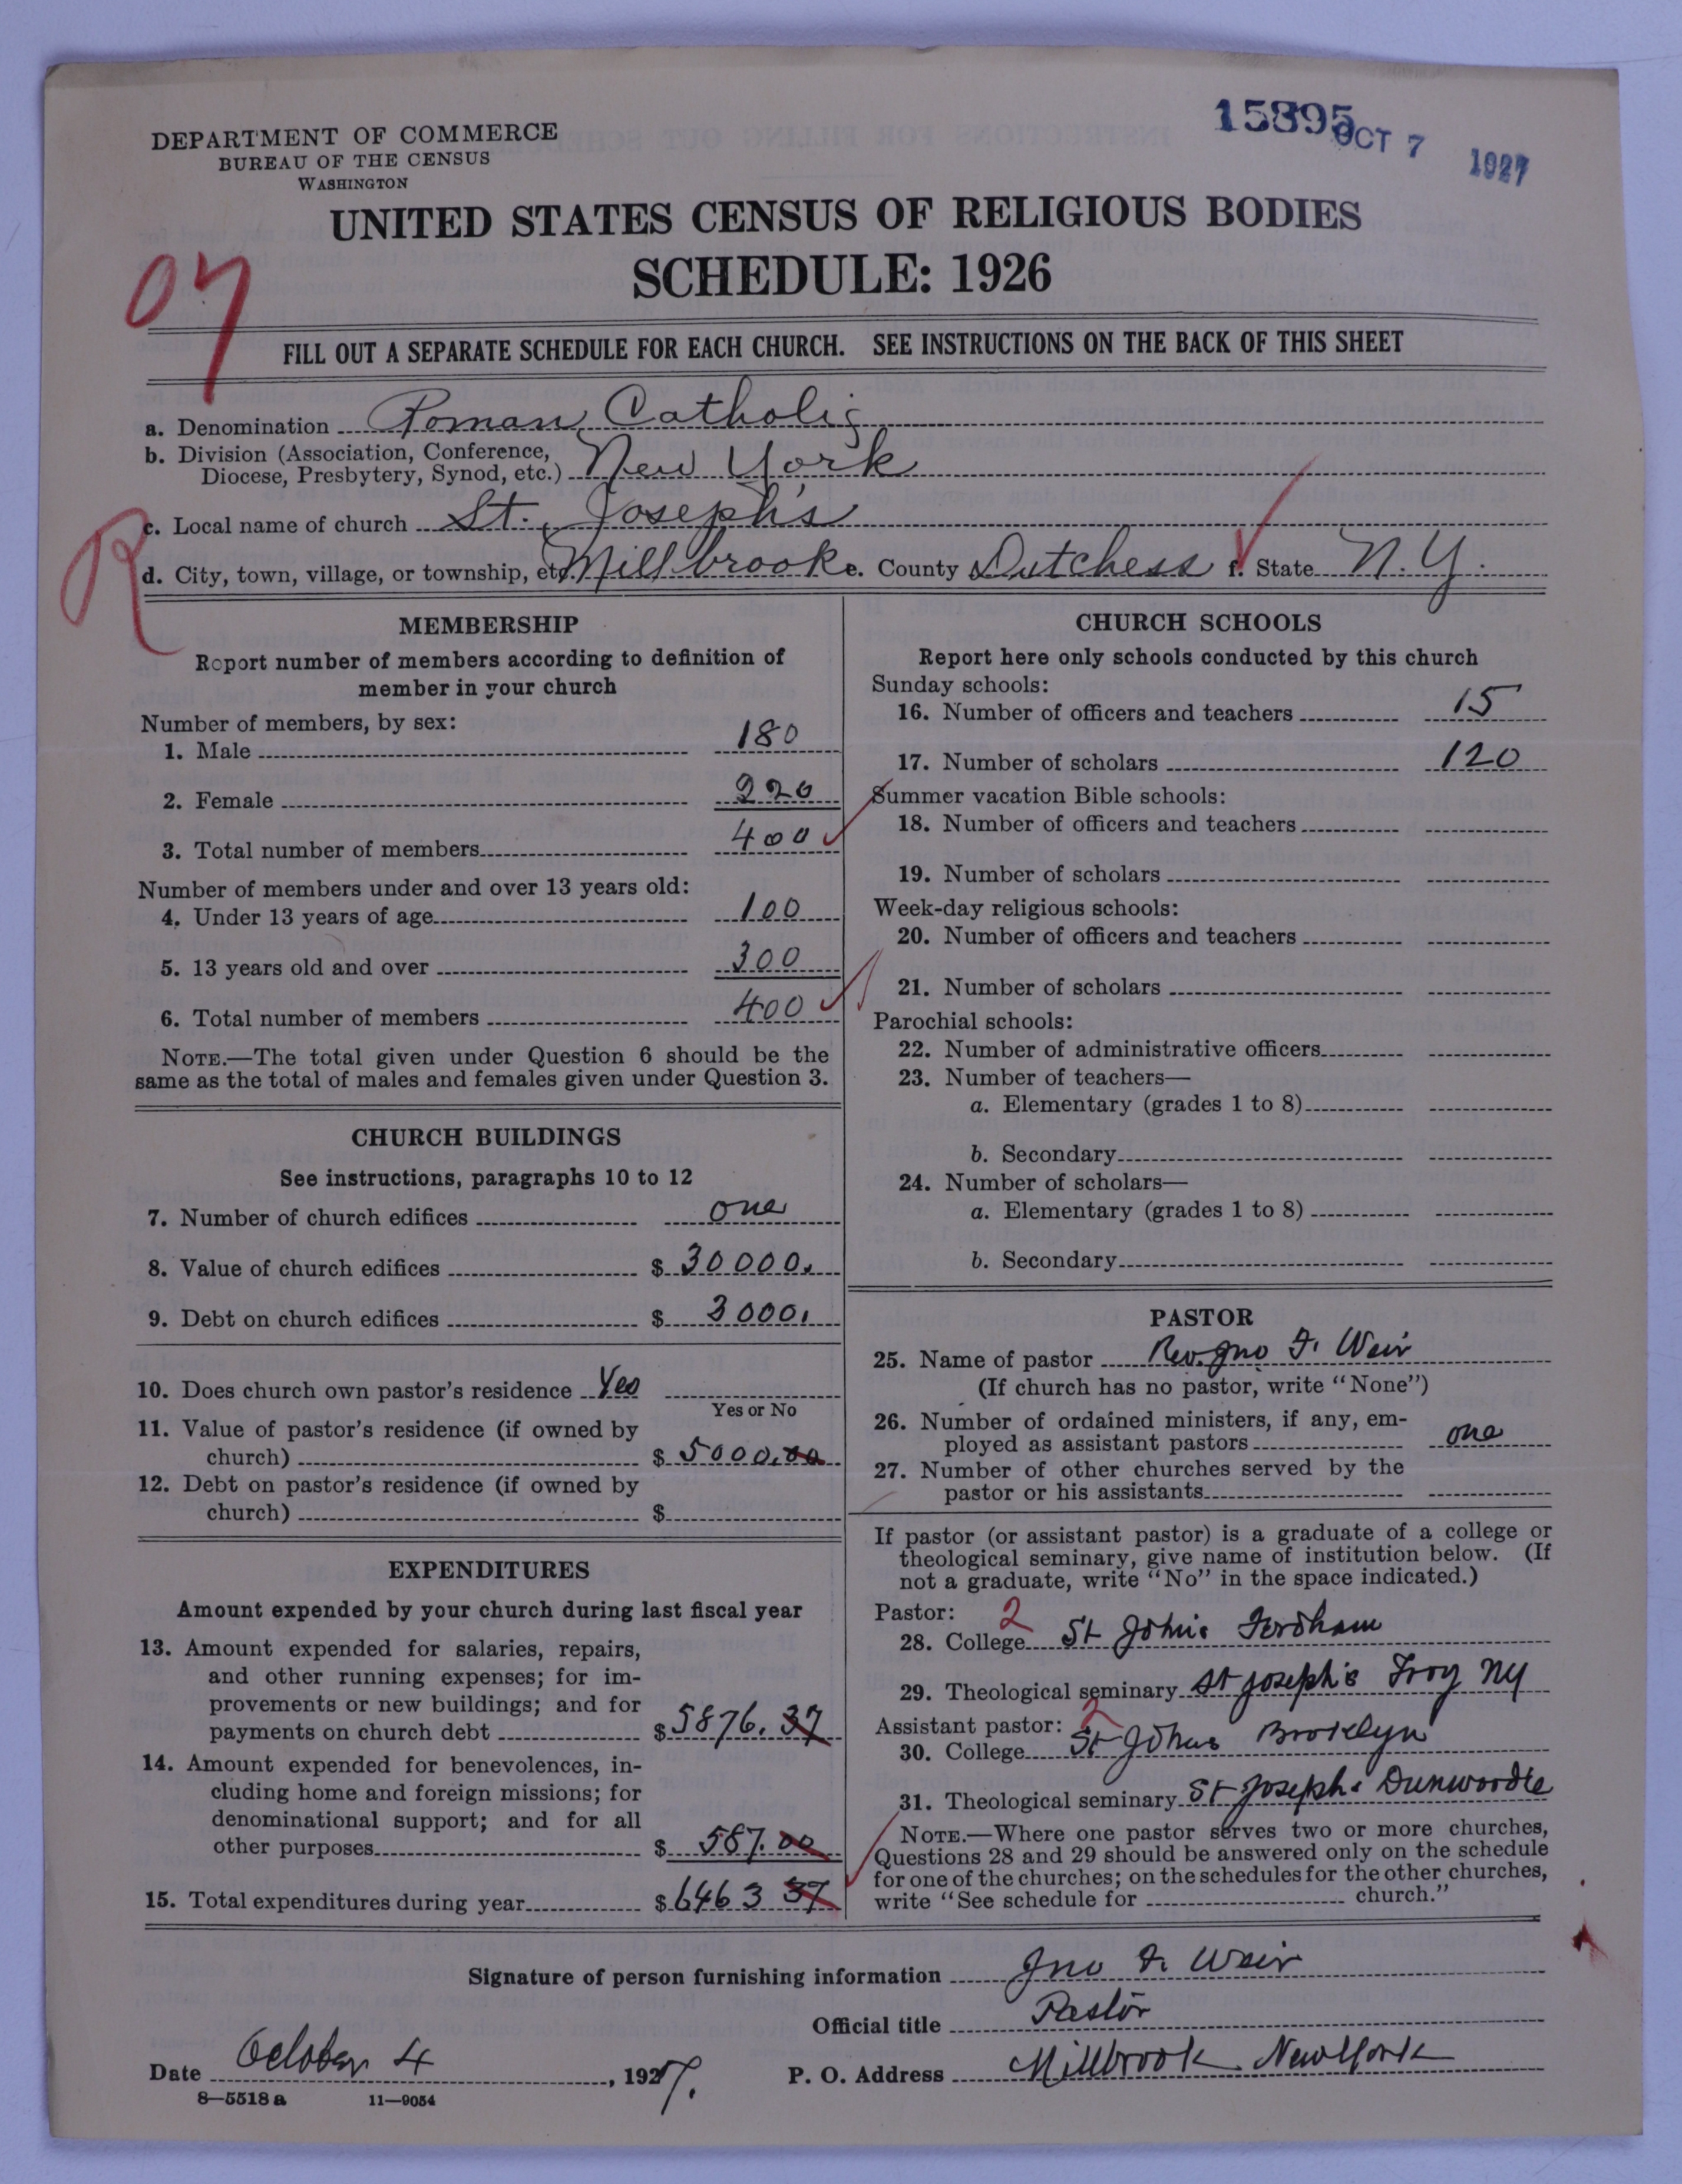 15395
OCT 7 1927
DEPARTMENT OF COMMERCE
BUREAU OF THE CENSUS
WASHINGTON
UNITED STATES CENSUS OF RELIGIOUS BODIES
SCHEDULE: 1926
07
FILL OUT A SEPARATE SCHEDULE FOR EACH CHURCH. SEE INSTRUCTIONS ON THE BACK OF THIS SHEET
a. Denomination Roman Catholic
b. Division (Association, Conference,
Diocese, Presbytery, Synod, etc.) New York
R
c. Local name of church St. Joseph's
d. City, town, village, or township, etc. Millbrook e. County Dutchess f. State N.Y.
MEMBERSHIP
Report number of members according to definition of
member in your church
Number of members, by sex:
1. Male 180
2. Female 220
3. Total number of members 400
Number of members under and over 13 years old:
4. Under 13 years of age 100
5. 13 years old and over 300
6. Total number of members 400
NOTE.—The total given under Question 6 should be the
same as the total of males and females given under Question 3.
CHURCH BUILDINGS
See instructions, paragraphs 10 to 12
7. Number of church edifices one
8. Value of church edifices $ 30000.
9. Debt on church edifices $ 3000.
10. Does church own pastor's residence Yes
Yes or No
11. Value of pastor's residence (if owned by
church) $ 5000.00
12. Debt on pastor's residence (if owned by
church) $
EXPENDITURES
Amount expended by your church during last fiscal year
13. Amount expended for salaries, repairs,
and other running expenses; for im-
provements or new buildings; and for
payments on church debt $ 5876.37
14. Amount expended for benevolences, in-
cluding home and foreign missions; for
denominational support; and for all
other purposes $ 587.00
15. Total expenditures during year $ 6463 37
CHURCH SCHOOLS
Report here only schools conducted by this church
Sunday schools:
16. Number of officers and teachers 15
17. Number of scholars 120
Summer vacation Bible schools:
18. Number of officers and teachers
19. Number of scholars
Week-day religious schools:
20. Number of officers and teachers
21. Number of scholars
Parochial schools:
22. Number of administrative officers
23. Number of teachers—
a. Elementary (grades 1 to 8)
b. Secondary
24. Number of scholars—
a. Elementary (grades 1 to 8)
b. Secondary
PASTOR
25. Name of pastor Rev. Jno F. Weir
(If church has no pastor, write "None")
26. Number of ordained ministers, if any, em-
ployed as assistant pastors one
27. Number of other churches served by the
pastor or his assistants
If pastor (or assistant pastor) is a graduate of a college or
theological seminary, give name of institution below. (If
not a graduate, write "No" in the space indicated.)
Pastor: 2
28. College St John's Fordham
29. Theological seminary St Joseph's Troy NY
Assistant pastor: 2
30. College St Johns Brooklyn
31. Theological seminary St Josephs Dunwoodie
NOTE.—Where one pastor serves two or more churches,
Questions 28 and 29 should be answered only on the schedule
for one of the churches; on the schedules for the other churches,
write "See schedule for church."
Signature of person furnishing information Jno F. Weir
Official title Pastor
Date October 4, 1927. P. O. Address Millbrook New York
8—5518 a 11—9054